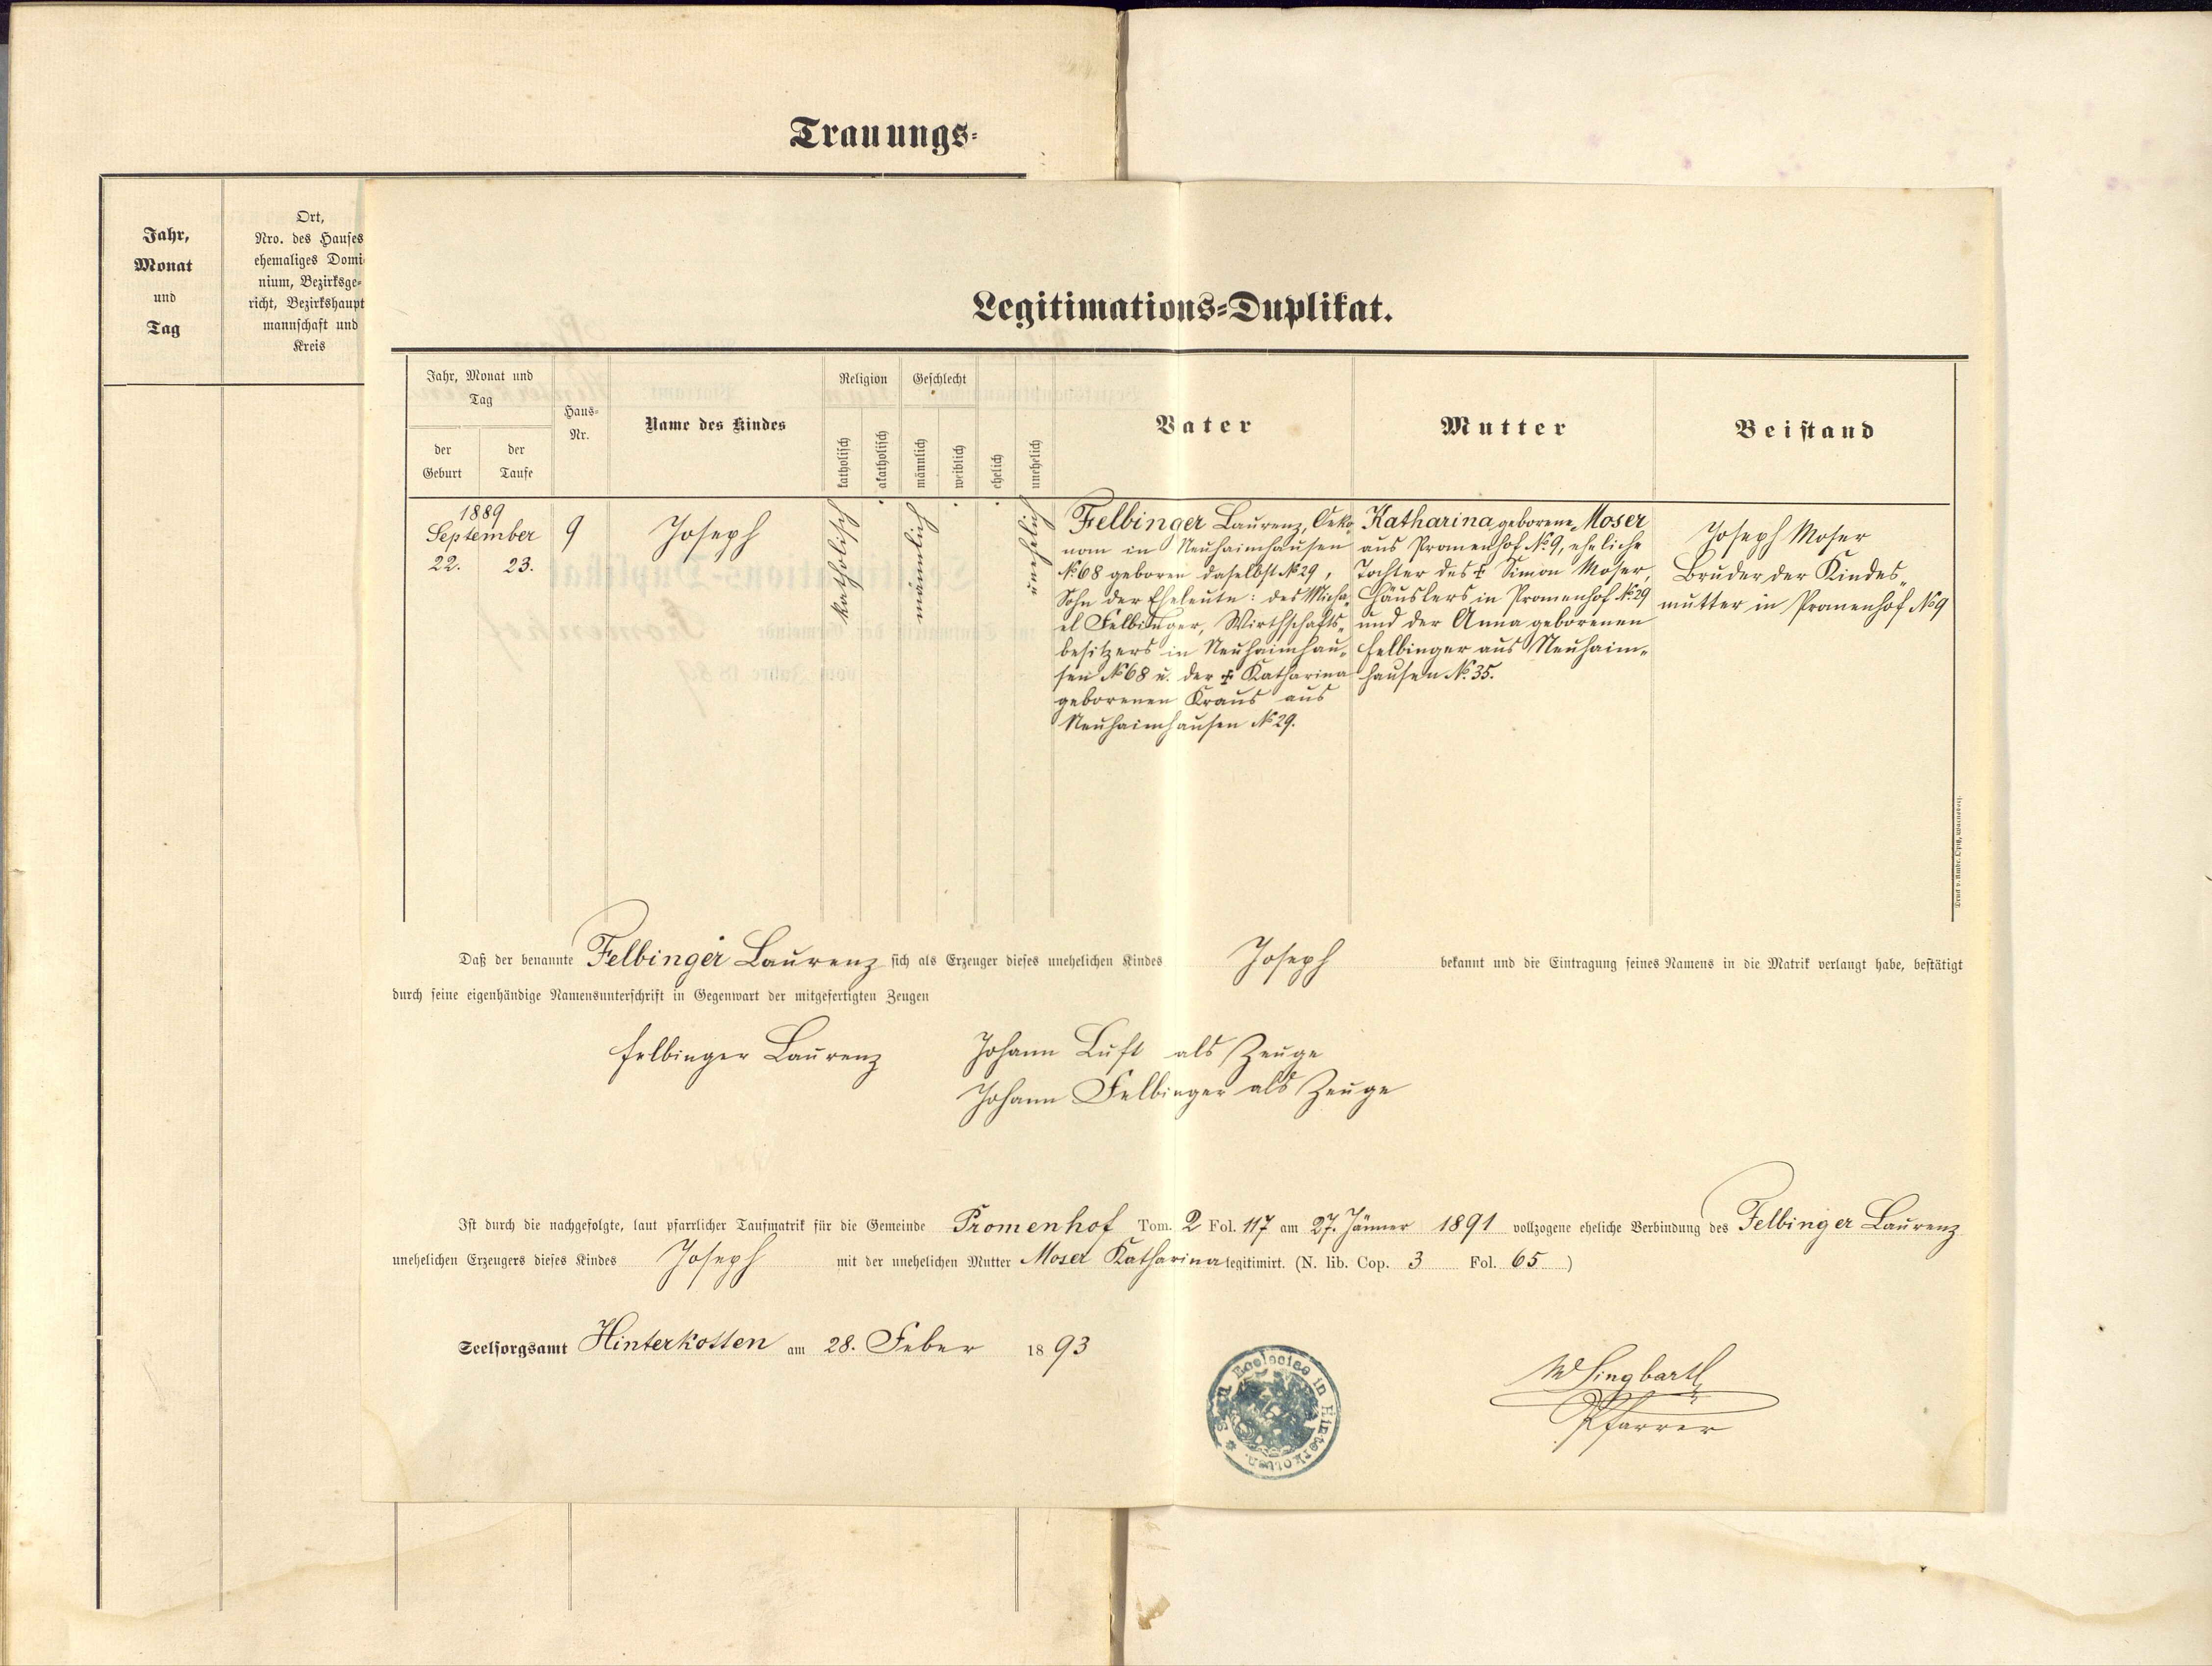 Trauungs-
Jahr,
Monat
und
Tag
Ort,
Nro. des Hauses
ehemaliges Domi-
nium, Bezirksge-
richt, Bezirkshaupt
mannschaft und
Kreis
Legitimations-Duplikat.
Jahr, Monat und
Tag
der
Geburt
der
Taufe
Haus-
Nr.
Name des Kindes
Religion
katholisch
akatholisch
Geschlecht
männlich
weiblich
ehelich
unehelich
Vater
Mutter
Beistand
1889
September
22. 23.
9
Joseph
katholisch
männlich
unehelich
Felbinger Laurenz, Oeko-
nom in Neuhaimhausen
No 68 geboren daselbst No 29,
Sohn der Eheleute: des Micha-
el Felbinger, Wirthschafts-
besitzers in Neuhaimhau-
sen No 68 u. der † Katharina
geborenen Kraus aus
Neuhaimhausen No 29.
Katharina geborene Moser
aus Promenhof No. 9, eheliche
Tochter des † Simon Moser,
Häuslers in Promenhof No. 29
und der Anna geborenen
Felbinger aus Neuhaim-
hausen No. 35.
Joseph Moser
Bruder der Kindes-
mutter in Promenhof No 9
Daß der benannte Felbinger Laurenz sich als Erzeuger dieses unehelichen Kindes Joseph bekannt und die Eintragung seines Namens in die Matrik verlangt habe, bestätigt
durch seine eigenhändige Namensunterschrift in Gegenwart der mitgefertigten Zeugen
Felbinger Laurenz
Johann Luft als Zeuge
Johann Felbinger als Zeuge
Ist durch die nachgefolgte, laut pfarrlicher Taufmatrik für die Gemeinde Promenhof Tom. 2 Fol. 117 am 27. Jänner 1891 vollzogene eheliche Verbindung des Felbinger Laurenz
unehelichen Erzeugers dieses Kindes Joseph mit der unehelichen Mutter Moser Katharina legitimirt. (N. lib. Cop. 3 Fol. 65 )
Seelsorgsamt Hinterkotten am 28. Feber 1893
Ecclesiae in Hinterkotten
W Singbartl
Pfarrer